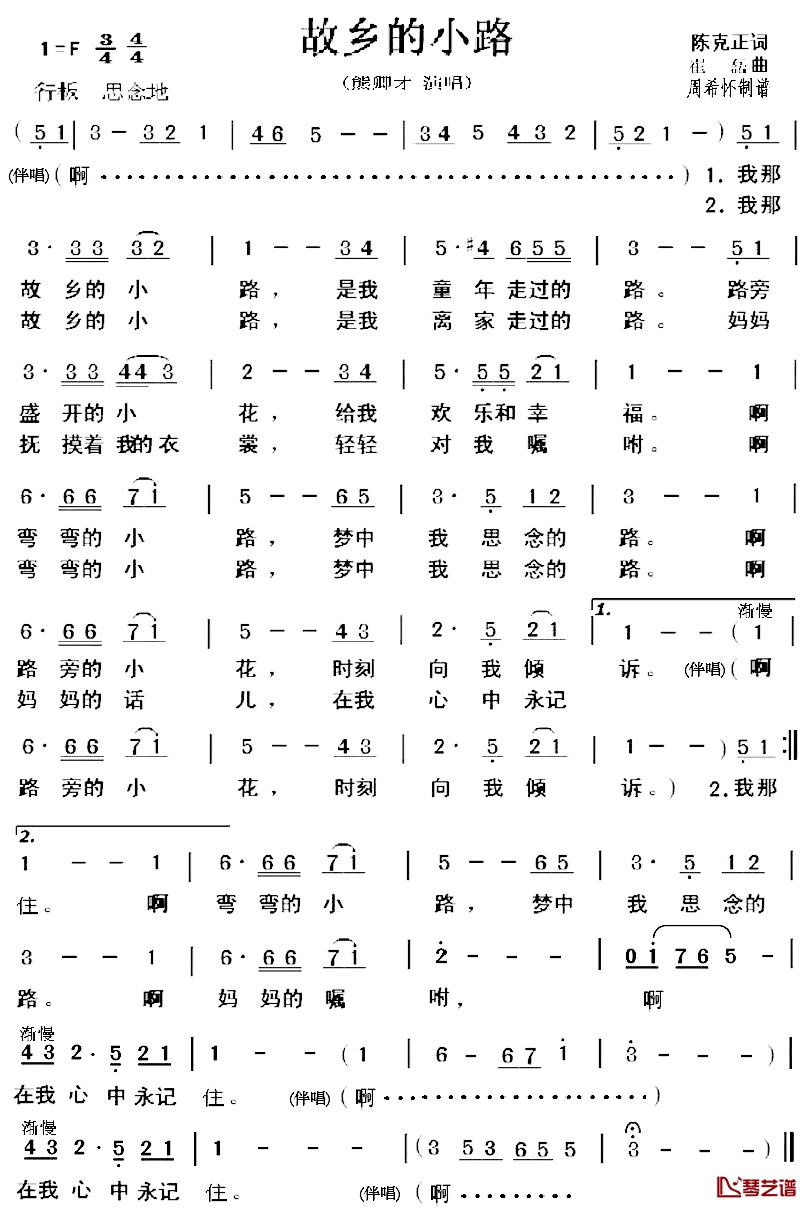 故乡的小路
1=F 3/4 4/4
陈克正词
崔磊曲
行板 思念地
(熊卿才 演唱)
周希怀制谱
(5 1 | 3 - 3 2 1 | 4 6 5 - | 3 4 5 4 3 2 | 5 2 1 - ) 5 1 |
(伴唱)(啊 ····································) 1. 我那
2. 我那
3· 3 3 3 2 | 1 - - 3 4 | 5· #4 6 5 5 | 3 - - 5 1 |
故 乡的 小 路， 是我 童 年 走过的 路。 路旁
故 乡的 小 路， 是我 离 家 走过的 路。 妈妈
3· 3 3 4 4 3 | 2 - - 3 4 | 5· 5 5 2 1 | 1 - - 1 |
盛 开的 小 花， 给我 欢 乐和 幸 福。 啊
抚 摸着 我的 衣 裳， 轻轻 对 我 嘱 咐。 啊
6· 6 6 7 i | 5 - - 6 5 | 3· 5 1 2 | 3 - - 1 |
弯 弯的 小 路， 梦中 我 思 念的 路。 啊
弯 弯的 小 路， 梦中 我 思 念的 路。 啊
1. 渐慢
6· 6 6 7 i | 5 - - 4 3 | 2· 5 2 1 | 1 - - ( 1 |
路 旁的 小 花， 时刻 向 我 倾 诉。 (伴唱)(啊
妈 妈的 话 儿， 在我 心 中 永记
6· 6 6 7 i | 5 - - 4 3 | 2· 5 2 1 | 1 - - ) 5 1 :||
路 旁的 小 花， 时刻 向 我 倾 诉。) 2. 我那
2.
1 - - 1 | 6· 6 6 7 i | 5 - - 6 5 | 3· 5 1 2 |
住。 啊 弯 弯的 小 路， 梦中 我 思 念的
3 - - 1 | 6· 6 6 7 i | 2 - - - | 0 i 7 6 5 - |
路。 啊 妈 妈的 嘱 咐， 啊
渐慢
4 3 2· 5 2 1 | 1 - - (1 | 6 - 6 7 i | 3 - - ) |
在我 心 中 永记 住。 (伴唱)(啊 ·························)
渐慢
4 3 2· 5 2 1 | 1 - - - | (3 5 3 6 5 5 | 3 - - ) ||
在我 心 中 永记 住。 (伴唱)(啊 ··········
琴艺谱